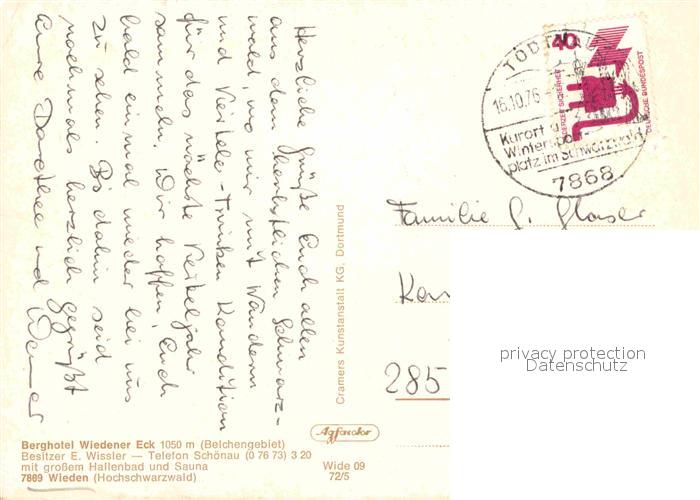 Herzliche Grüße Euch allen
aus dem herbstlichen Schwarz-
wald, wo wir mit Wandern
und Viertele-Trinken Kondition
für das nächste Vierteljahr
sammeln. Wir hoffen, Euch
bald einmal wieder bei uns
zu sehen. Bis dahin seid
nochmals herzlich gegrüßt
Eure Dorothee und Werner
40
JEDERZEIT SICHERHEIT
DEUTSCHE BUNDESPOST
16.10.76
Kurort u.
Wintersport-
platz im Schwarzwald
7868
Familie G. Glaser
285
privacy protection
Datenschutz
Cramers Kunstanstalt KG, Dortmund
Agfacolor
Wide 09
72/5
Berghotel Wiedener Eck 1050 m (Belchengebiet)
Besitzer E. Wissler — Telefon Schönau (0 76 73) 3 20
mit großem Hallenbad und Sauna
7869 Wieden (Hochschwarzwald)